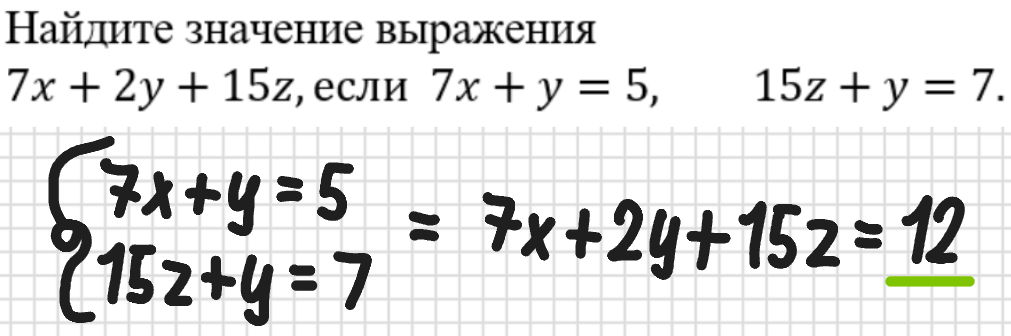 Найдите значение выражения
7x + 2y + 15z, если 7x + y = 5, 15z + y = 7.
7x+y=5
15z+y=7
= 7x+2y+15z=12